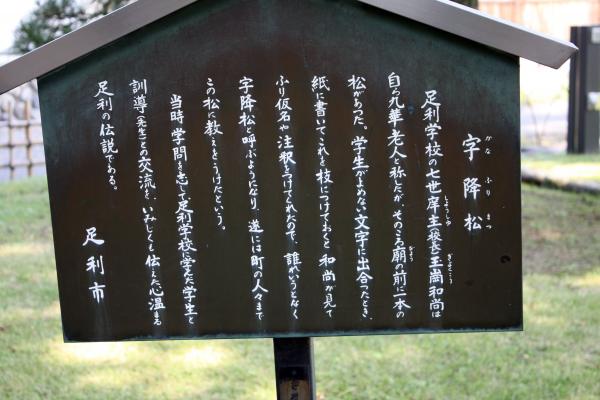 字降松
かなふりまつ
足利学校の七世庠主(校長)玉崗和尚は
しょうしゅ
ぎょくこう
自ら九華老人と称したが、そのころ廟の前に一本の
びょう
松があった。学生がよめない文字に出合ったとき、
紙に書いてこれを枝につけておくと、和尚が見て
ふり仮名や注釈をつけてくれたので、誰れいうとなく
字降松と呼ぶようになり、遂には町の人々まで
この松に教えをうけたという。
当時学問を志し足利学校に学んだ学生と
訓導(先生)との交流を、いみじくも伝えた心温まる
足利の伝説である。
足利市